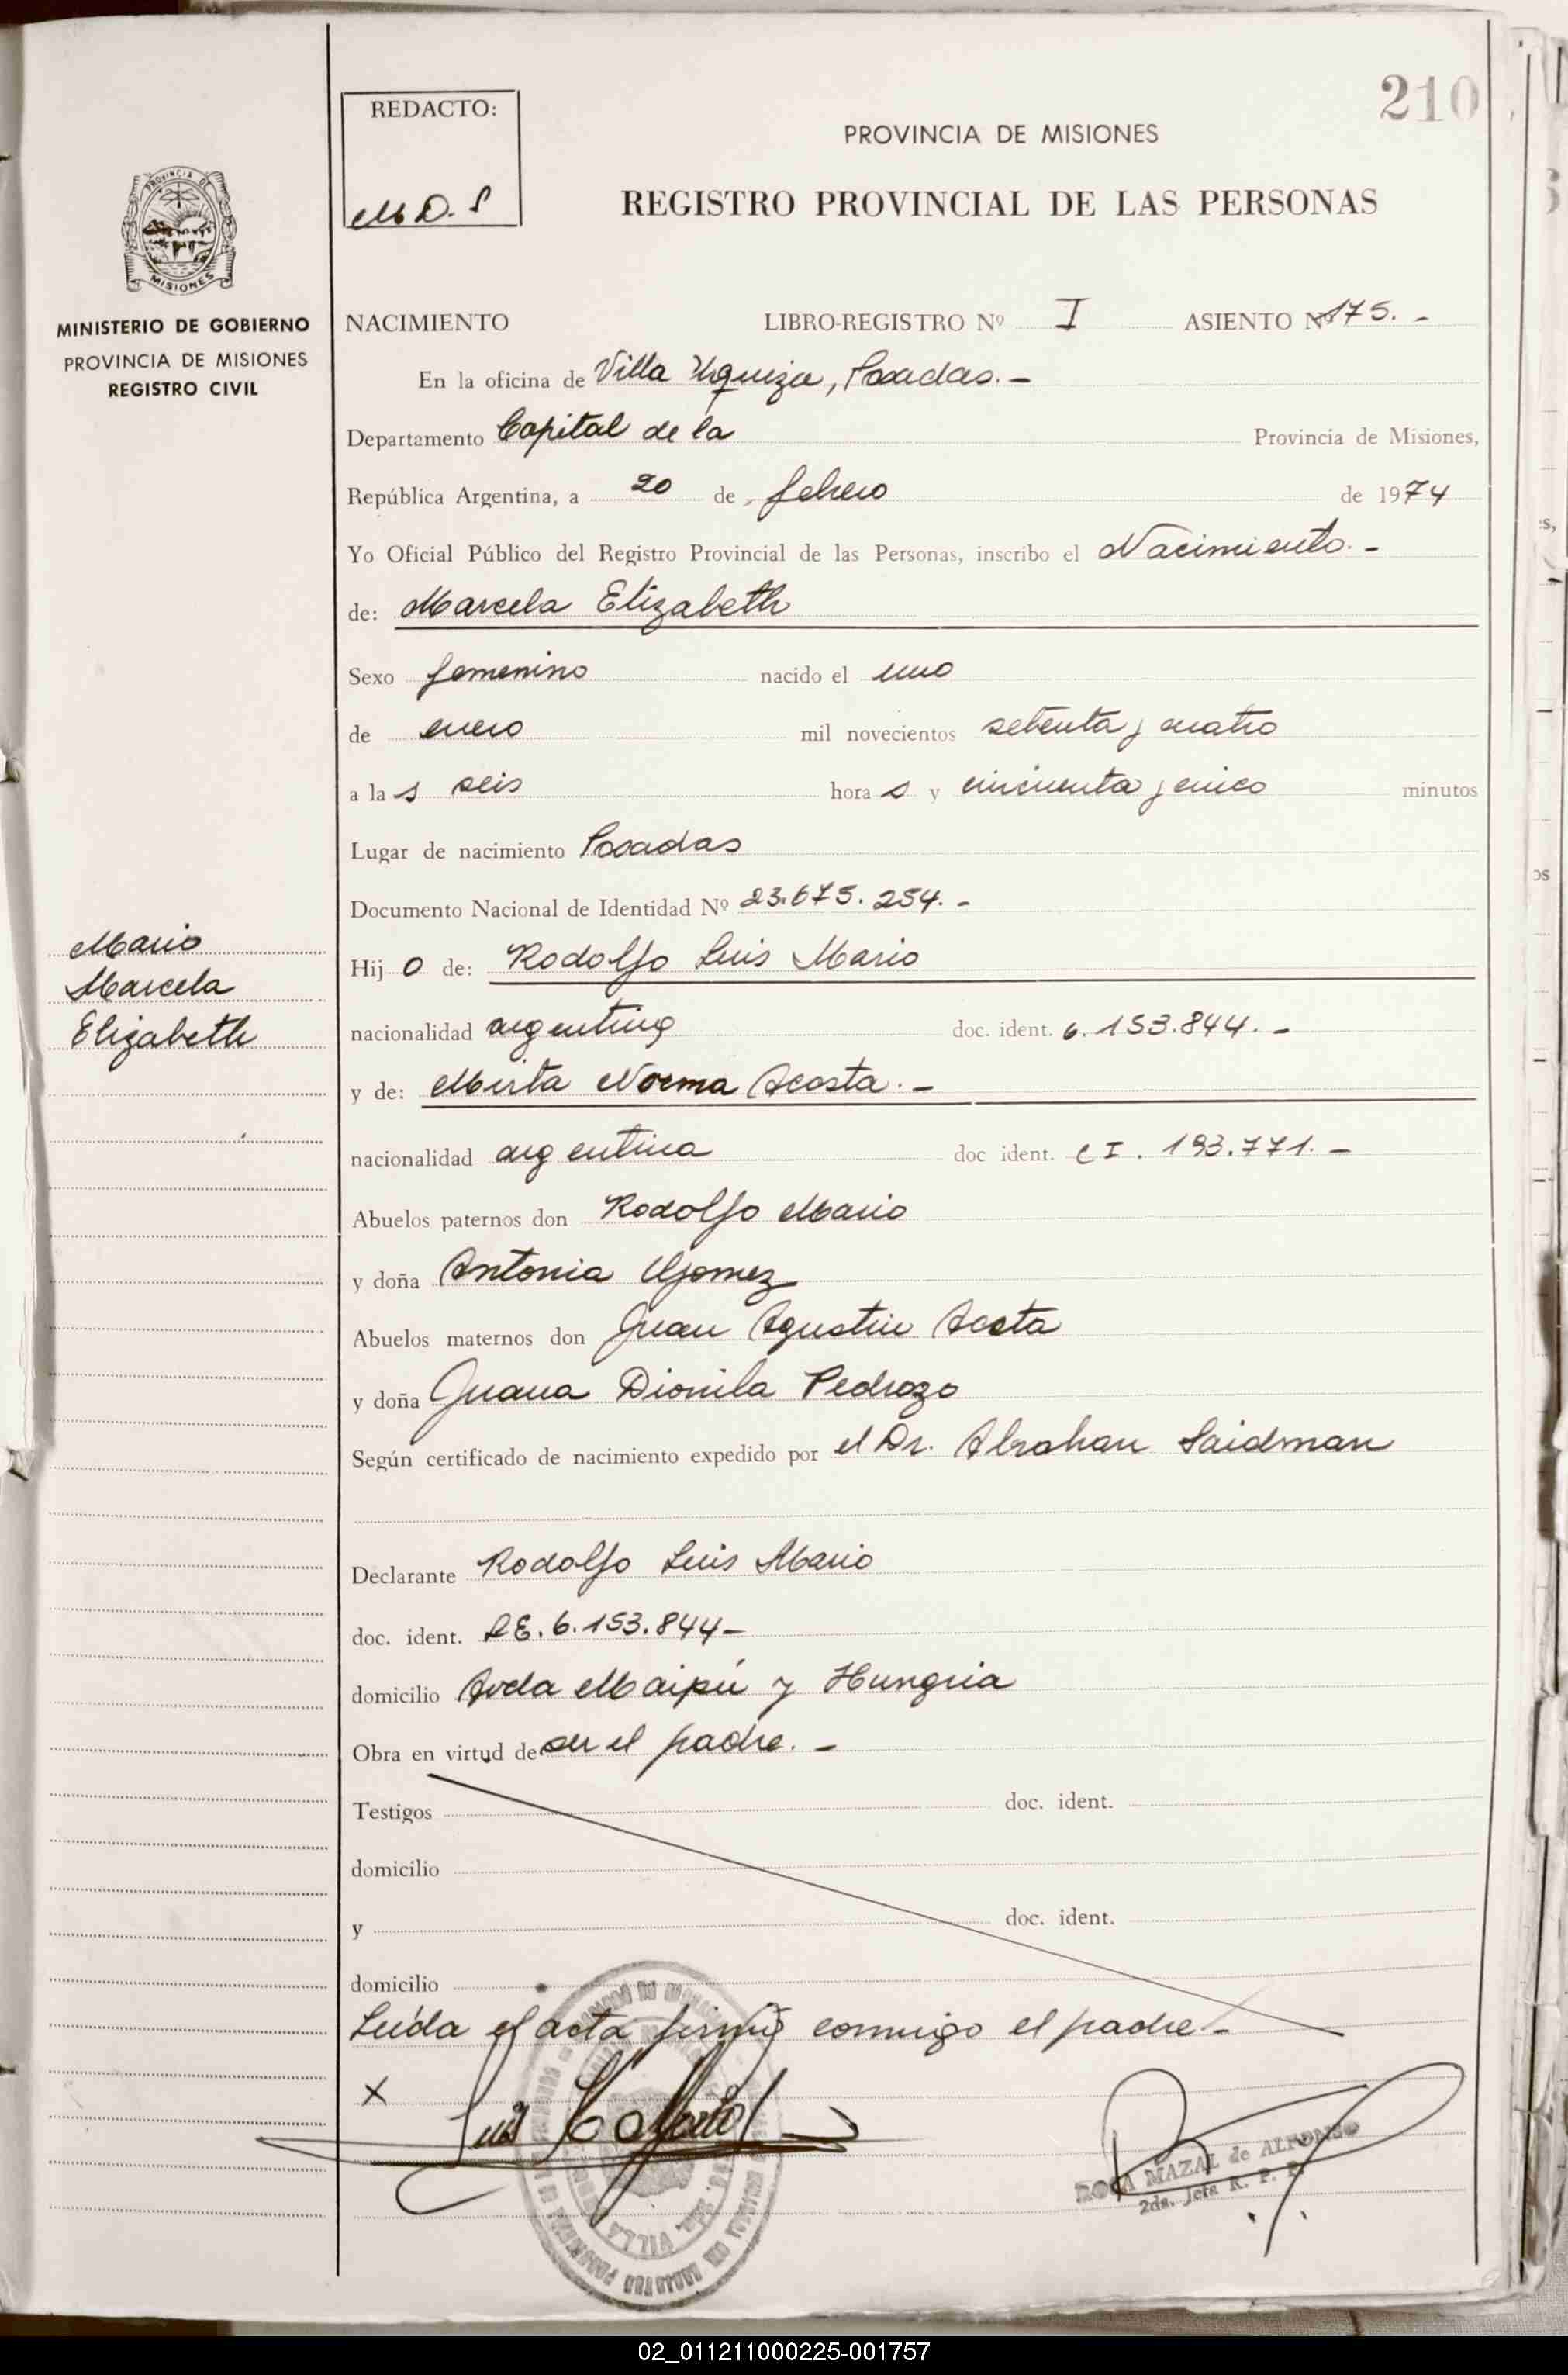 210
REDACTO:
M.D.S
PROVINCIA DE MISIONES
REGISTRO PROVINCIAL DE LAS PERSONAS
PROVINCIA DE
MISIONES
MINISTERIO DE GOBIERNO
PROVINCIA DE MISIONES
REGISTRO CIVIL
NACIMIENTO LIBRO-REGISTRO Nº I ASIENTO Nº 175. -
En la oficina de Villa Urquiza, Posadas. -
Departamento Capital de la Provincia de Misiones,
República Argentina, a 20 de febrero de 1974
Yo Oficial Público del Registro Provincial de las Personas, inscribo el Nacimiento. -
de: Marcela Elizabeth
Sexo femenino nacido el uno
de enero mil novecientos setenta y cuatro
a las seis horas y cincuenta y cinco minutos
Lugar de nacimiento Posadas
Documento Nacional de Identidad Nº 23.675.254. -
Mario
Marcela
Elizabeth
Hij o de: Rodolfo Luis Mario
nacionalidad argentina doc. ident. 6.153.844. -
y de: Mirta Norma Acosta. -
nacionalidad argentina doc ident. C I. 193.771. -
Abuelos paternos don Rodolfo Mario
y doña Antonia Gomez
Abuelos maternos don Juan Agustin Acosta
y doña Juana Dionila Pedrozo
Según certificado de nacimiento expedido por el Dr. Abrahan Saidman
Declarante Rodolfo Luis Mario
doc. ident. LE. 6.153.844 -
domicilio Avda Maipú y Hungria
Obra en virtud de ser el padre. -
Testigos doc. ident.
domicilio
y doc. ident.
domicilio
Leída el acta firmó conmigo el padre. -
X
ROSA MAZAL de ALFONSO
2da. Jefa R. P. P.
VILLA
02_011211000225-001757